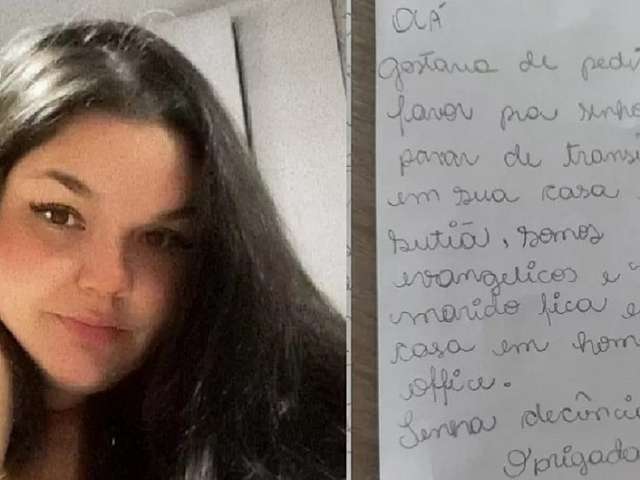 OLÁ
gostaria de pedi
favor pra senho
parar de transi
em sua casa
sutiã, somos
evangelicos e
marido fica e
casa em hom
office.
Tenha decênci
Obrigada